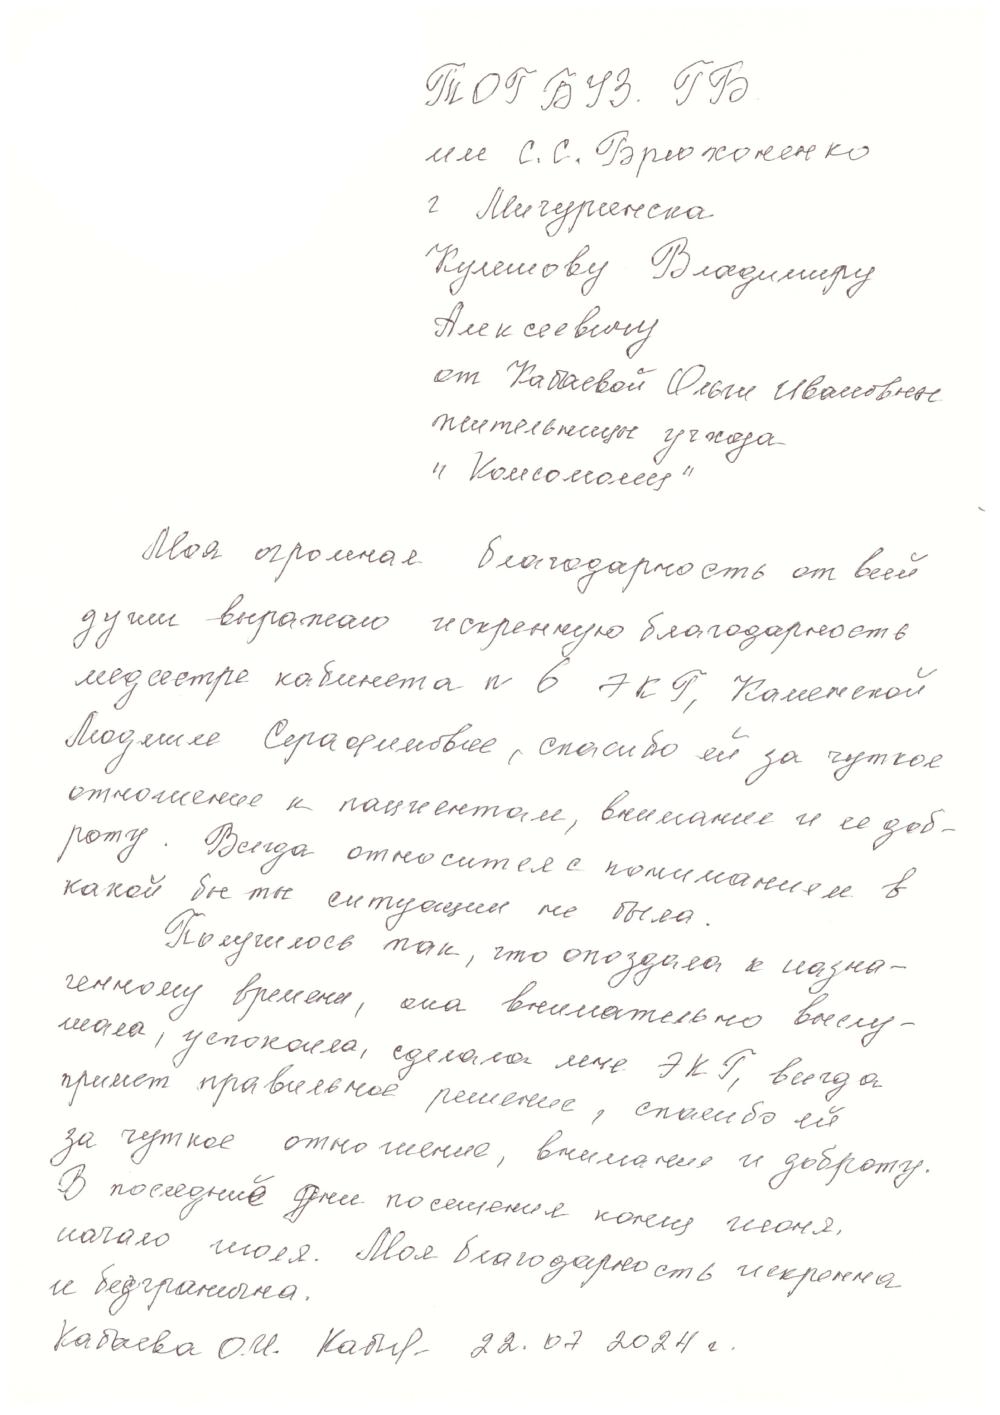 ТОГБУЗ. ГБ
им С.С. Брюхоненко
г Мичуринска
Кулешову Владимиру
Алексеевичу
от Кабаевой Ольги Ивановны
жительницы учхоза
"Комсомолец"
Моя огромная благодарность от всей
души выражаю искреннюю благодарность
медсестре кабинета № 6 ЭКГ, Каменской
Людмиле Серафимовне, спасибо ей за чуткое
отношение к пациентам, внимание и ее доб-
роту. Всегда относится с пониманием в
какой бы ты ситуации не была.
Получилось так, что опоздала к назна-
ченному времени, она внимательно выслу-
шала, успокоила, сделала мне ЭКГ, всегда
примет правильное решение, спасибо ей
за чуткое отношение, внимание и доброту.
В последние дни посещения конец июня,
начало июля. Моя благодарность искренна
и безгранична.
Кабаева О.И. 22.07 2024 г.